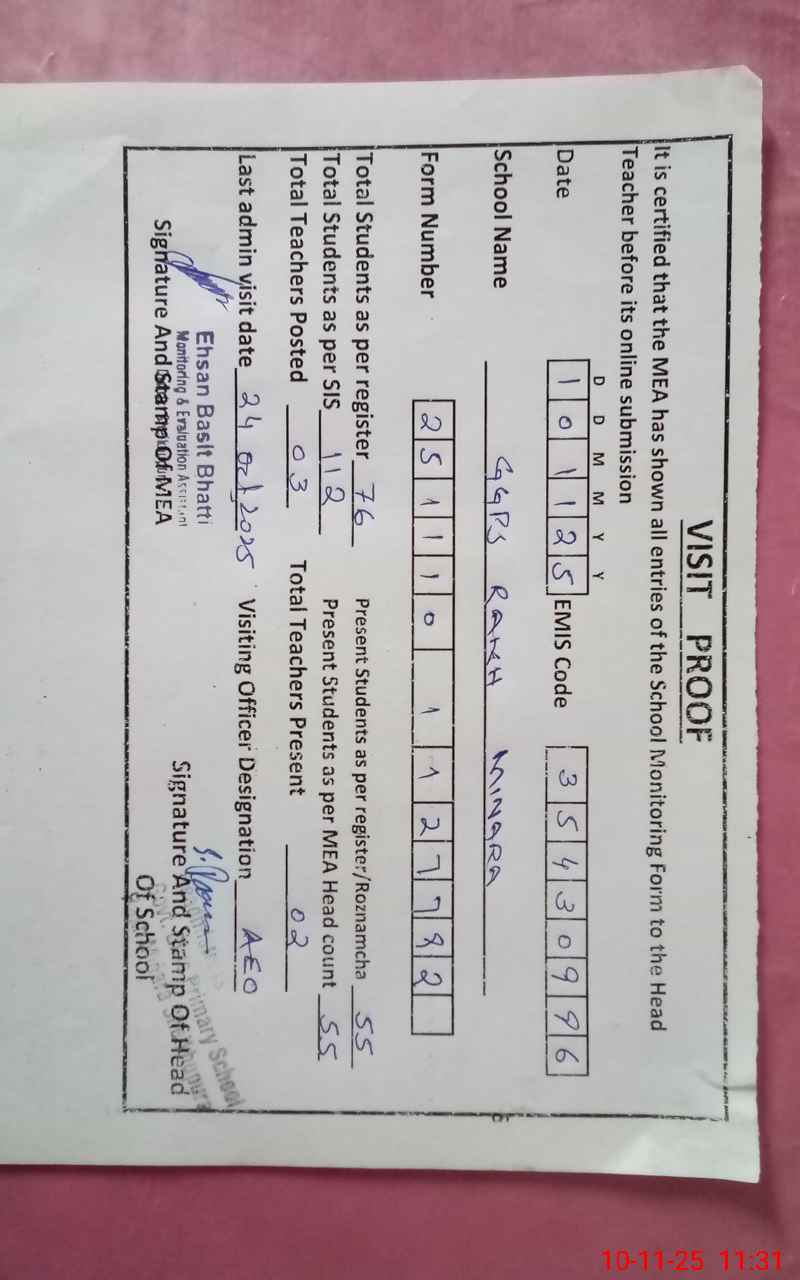 VISIT PROOF
It is certified that the MEA has shown all entries of the School Monitoring Form to the Head
Teacher before its online submission
D D M M Y Y
Date 1 0 1 1 2 5 EMIS Code 3 5 4 3 0 9 9 6
School Name GGPS RANH MINARA
Form Number 2 5 1 1 1 0 1 1 2 7 7 9 2
Total Students as per register 76 Present Students as per register/Roznamcha 55
Total Students as per SIS 112 Present Students as per MEA Head count 55
Total Teachers Posted 03 Total Teachers Present 02
Last admin visit date 24 Oct, 2025 Visiting Officer Designation AEO
Ehsan Basit Bhatti
Monitoring & Evaluation Assistant
Signature And Stamp Of MEA
Signature And Stamp Of Head
Of School
Primary School
10-11-25 11:31